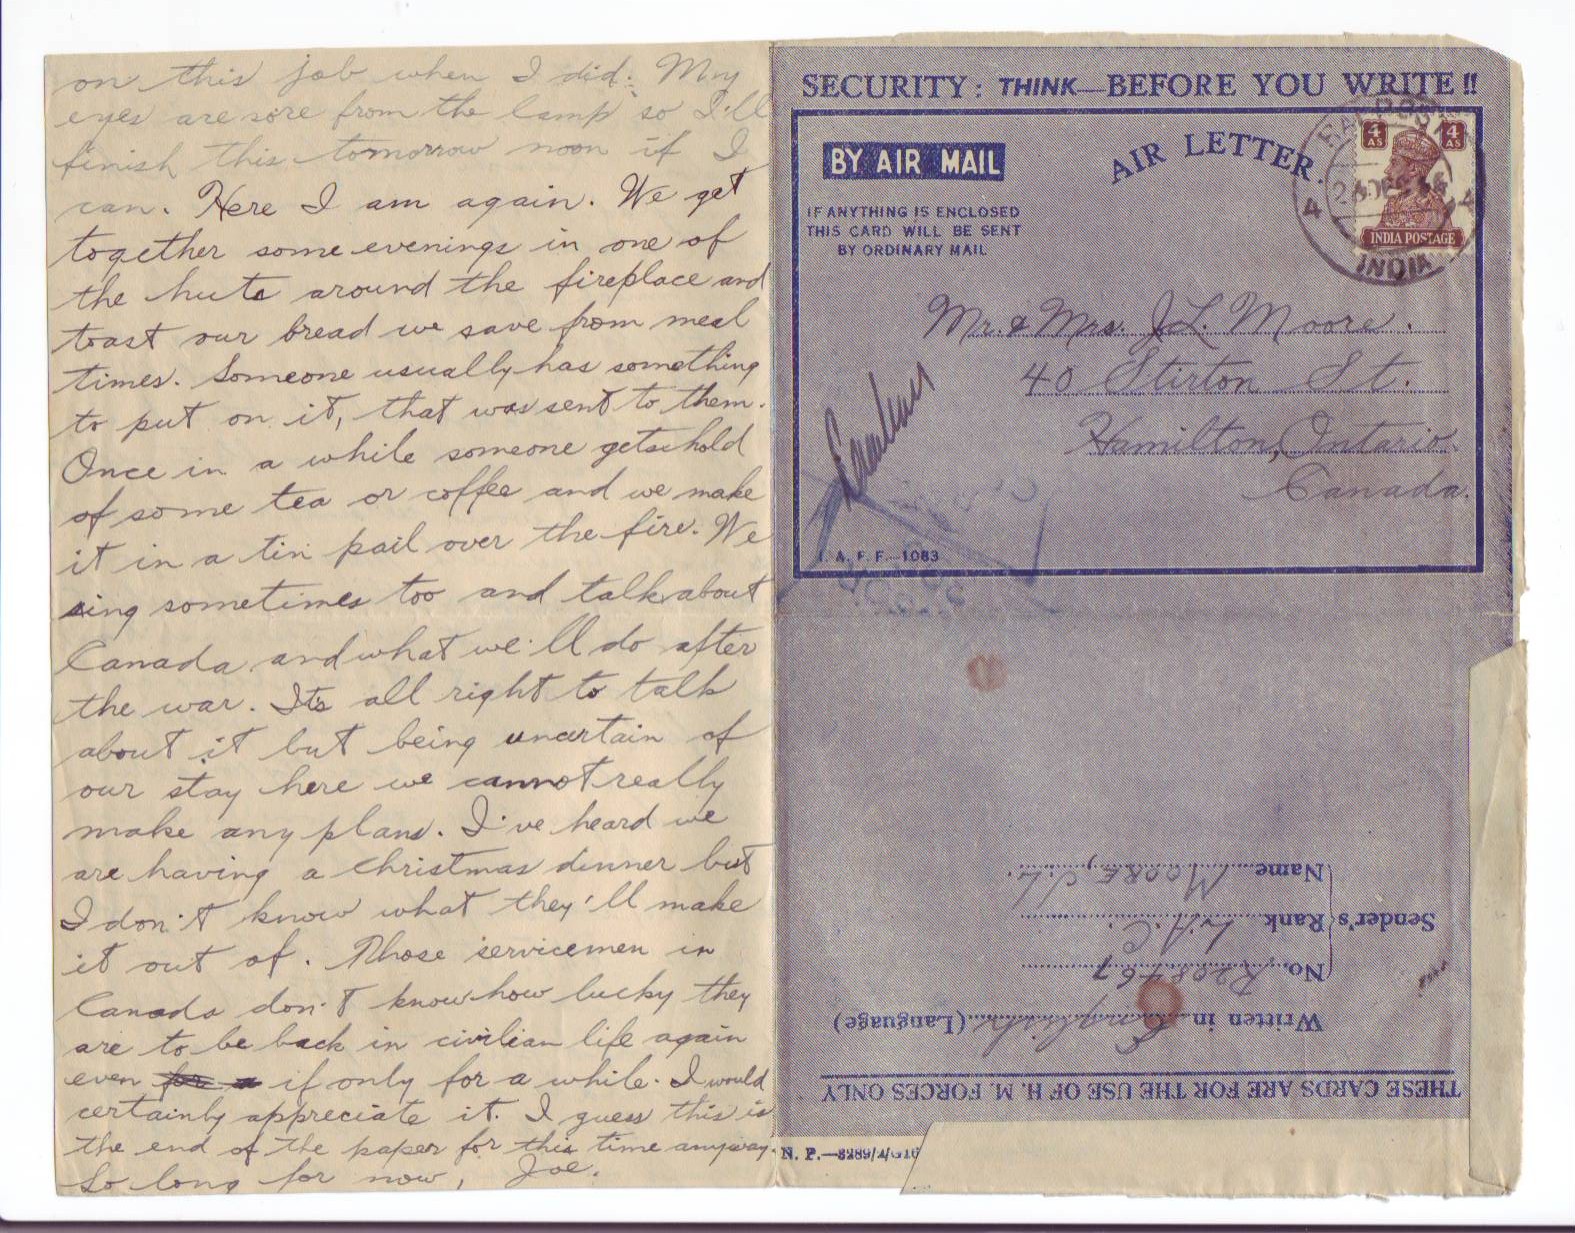 on this job when I did. My
eyes are sore from the lamp so I'll
finish this tomorrow noon if I
can. Here I am again. We get
together some evenings in one of
the huts around the fireplace and
toast our bread we save from meal
times. Someone usually has something
to put on it, that was sent to them.
Once in a while someone gets hold
of some tea or coffee and we make
it in a tin pail over the fire. We
sing sometimes too and talk about
Canada and what we'll do after
the war. It's all right to talk
about it but being uncertain of
our stay here we cannot really
make any plans. I've heard we
are having a Christmas dinner but
I don't know what they'll make
it out of. Those servicemen in
Canada don't know how lucky they
are to be back in civilian life again
even if only for a while. I would
certainly appreciate it. I guess this is
the end of the paper for this time anyway.
So long for now, Joe.
SECURITY: THINK—BEFORE YOU WRITE!!
BY AIR MAIL
AIR LETTER.
IF ANYTHING IS ENCLOSED
THIS CARD WILL BE SENT
BY ORDINARY MAIL
4 AS
4 AS
INDIA POSTAGE
4
INDIA
Mr. & Mrs. J.L. Moore.
40 Stirton St.
Hamilton, Ontario.
Canada.
I. A. F. F.—1083
Name MOORE, J.L.
Sender's Rank L.A.C.
No. R208467
Written in English (Language)
THESE CARDS ARE FOR THE USE OF H. M. FORCES ONLY